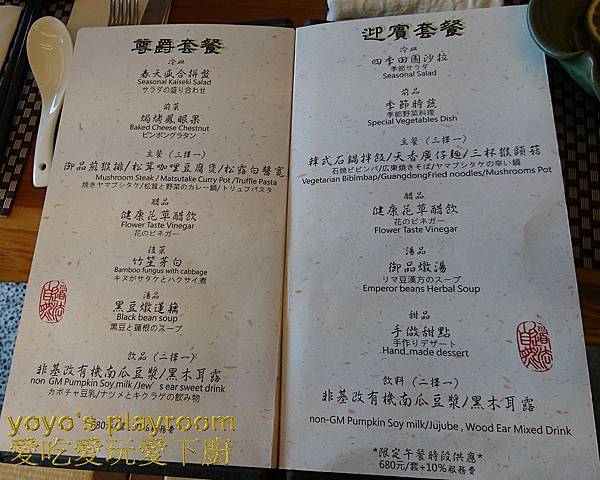 尊爵套餐
冷皿
春天盛合拼盤
Seasonal Kaiseki Salad
サラダの盛り合わせ
前菜
焗烤鳳眼果
Baked Cheese Chestnut
ピンポングラタン
主餐（三擇一）
御品煎猴排/松茸咖哩豆腐煲/松露白醬寬
Mushroom Steak / Matsutake Curry Pot /Truffle Pasta
焼きヤマブシタケ/松茸と野菜のカレー鍋/トリュフパスタ
醋品
健康花草醋飲
Flower Taste Vinegar
花のビネガー
後菜
竹笙茅白
Bamboo fungus with cabbage
キヌガサタケとハクサイ煮
湯品
黑豆燉蓮藕
Black bean soup
黒豆と蓮根のスープ
飲品（二擇一）
非基改有機南瓜豆漿/黑木耳露
non-GM Pumpkin Soy milk /Jew's ear sweet drink
カボチャ豆乳/ナツメとキクラゲの飲み物
迎賓套餐
冷皿
四季田園沙拉
季節サラダ
Seasonal Salad
前品
季節時蔬
季節野菜料理
Special Vegetables Dish
主餐（三擇一）
韓式石鍋拌飯/天香廣仔麵/三杯猴頭菇
石焼ビビンバ/広東焼きそば/ヤマブシタケの辛い鍋
Vegetarian Bibimbap/GuangdongFried noodles/Mushrooms Pot
醋品
健康花草醋飲
花のビネガー
Flower Taste Vinegar
湯品
御品燉湯
リマ豆漢方のスープ
Emperor beans Herbal Soup
甜品
手做甜點
手作りデザート
Hand_made dessert
飲料（二擇一）
非基改有機南瓜豆漿/黑木耳露
non-GM Pumpkin Soy milk/Jujube , Wood Ear Mixed Drink
*限定午餐時段供應*
680元/套+10%服務費
yoyo's playroom
愛吃愛玩愛下廚